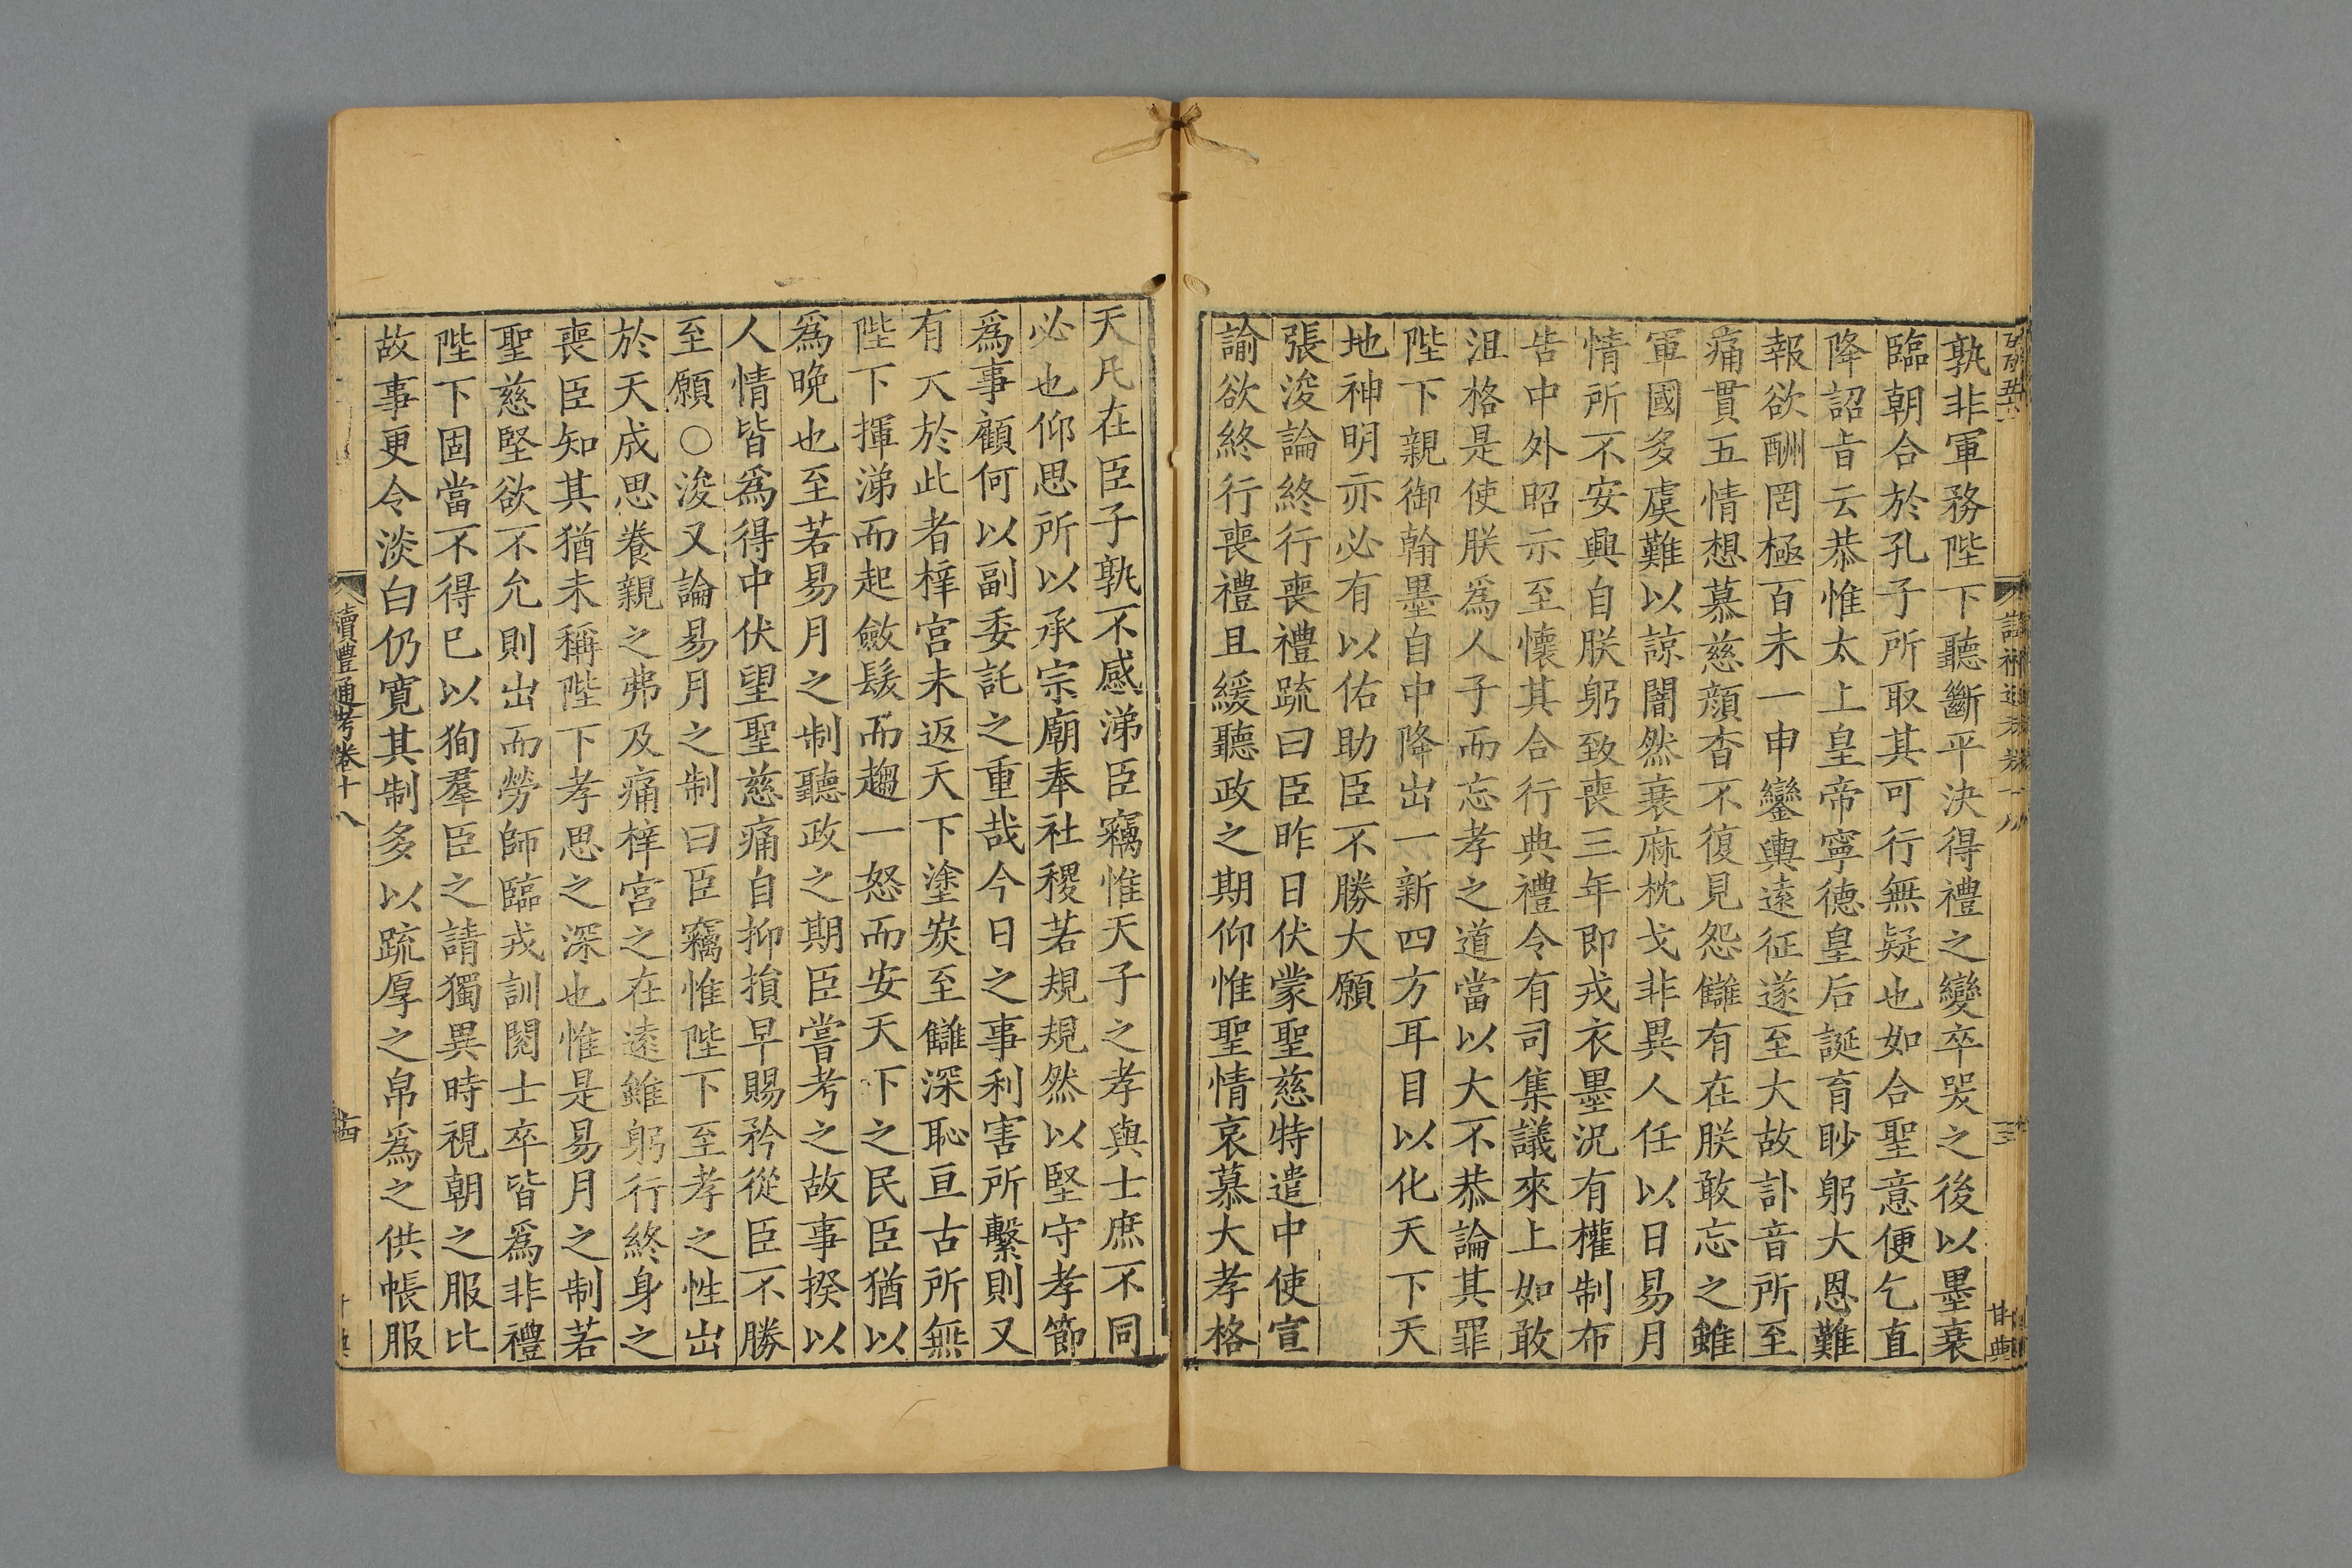 孰非軍務陛下聽斷平決得禮之變卒哭之後以墨衰
臨朝合於孔子所取其可行無疑也如合聖意便乞直
降詔旨云恭惟太上皇帝寧德皇后誕育眇躬大恩難
報欲酬罔極百未一申鑾輿遠征遂至大故訃音所至
痛貫五情想慕慈顔杳不復見怨讎有在朕敢忘之雖
軍國多虞難以諒闇然衰麻枕戈非異人任以日易月
情所不安興自朕躬致喪三年即戎衣墨況有權制布
告中外昭示至懷其合行典禮令有司集議來上如敢
沮格是使朕爲人子而忘孝之道當以大不恭論其罪
陛下親御翰墨自中降出一新四方耳目以化天下天
地神明亦必有以佑助臣不勝大願
張浚論終行喪禮疏曰臣昨日伏蒙聖慈特遣中使宣
諭欲終行喪禮且緩聽政之期仰惟聖情哀慕大孝格
天凡在臣子孰不感涕臣竊惟天子之孝與士庶不同
必也仰思所以承宗廟奉社稷若規規然以堅守孝節
爲事顧何以副委託之重哉今日之事利害所繫則又
有大於此者梓宮未返天下塗炭至讎深恥亘古所無
陛下揮涕而起斂髮而趨一怒而安天下之民臣猶以
爲晚也至若易月之制聽政之期臣嘗考之故事揆以
人情皆爲得中伏望聖慈痛自抑損早賜矜從臣不勝
至願○浚又論易月之制曰臣竊惟陛下至孝之性出
於天成思養親之弗及痛梓宮之在遠雖躬行終身之
喪臣知其猶未稱陛下孝思之深也惟是易月之制若
聖慈堅欲不允則出而勞師臨戎訓閱士卒皆爲非禮
陛下固當不得已以狥羣臣之請獨異時視朝之服比
故事更令淡白仍寬其制多以疏厚之帛爲之供帳服
讀禮通考卷十八